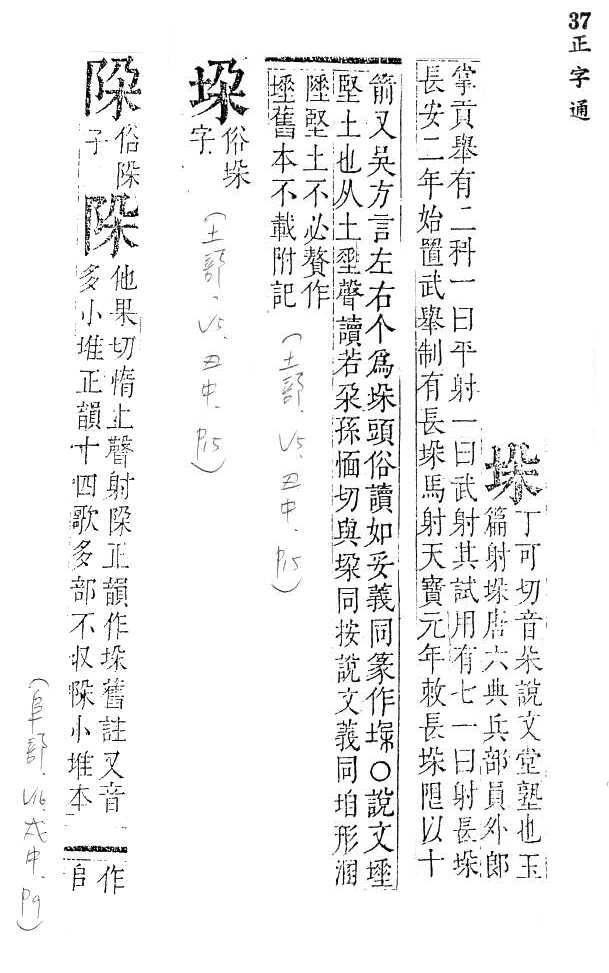 37正字通
垛
丁可切音朵說文堂塾也玉
篇射垛唐六典兵部員外郎
掌貢舉有二科一曰平射一曰武射其試用有七一曰射長垛
長安二年始置武舉制有長垛馬射天寶元年敕長垛限以十
箭又吳方言左右个爲垛頭俗讀如妥義同篆作𡑞〇說文堊
堅土也从土聲讀若朶孫愐切與垜同按說文義同垍形溷
堅土不必贅作
舊本不載附記
(土部、V5、丑中、P15)
垜
俗垛
字
(土部、V5、丑中、P15)
陊
俗陏
子
他果切惰上聲射正韻作垛舊註又音
多小堆正韻十四歌多部不収小堆本
作
𨸏
(阜部、V16、戌中、P9)